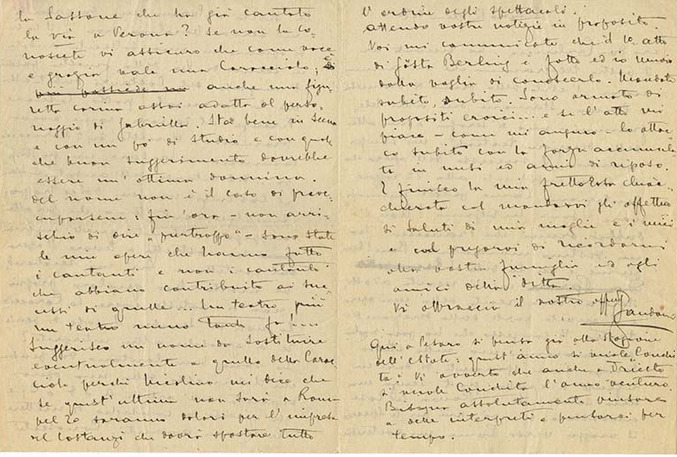 la Sassone che ha già cantato
la Via a Verona? Se non la co-
noscete vi assicuro che come voce
e grazia vale una Caracciolo,
anche una figu-
retta corina assai adatta al perso-
naggio di Gabriella. Sta bene in scena
e con un po' di studio e con qual-
che buon suggerimento dovrebbe
essere un'ottima
Del nome non è il caso di preoc-
cuparsene: fin'ora - non arri-
schio di dire "purtroppo" - sono state
le mie opere che hanno fatto
i cantanti e non i cantanti
che abbiano contribuito ai suc-
cessi di quelle ... un teatro più
un teatro meno
Suggerisco un nome da sostituire
eventualmente a quello della Carac-
ciolo perchè Nicolino mi dice che
se quest'ultima non sarà a Roma
pel 20 saranno dolori per l'impresa
del Costanzi che dovrà spostare tutto
l'ordine degli spettacoli.
Attendo vostre notizie in proposito
Voi mi comunicate che il 1o atto
di Gösta Berling è fatto ed io muoio
dalla voglia di conoscerlo. Mandate
subito, subito. Sono armato di
propositi eroici ... e se l'atto mi
piace - come mi auguro - lo attac-
co subito con la forza accumula-
ta in mesi ed anni di riposo.
E finisco la mia frettolosa chiac-
chierata col mandarvi gli affettuo-
si saluti di mia moglie e i miei
e col pregarvi di ricordarmi
alla vostra famiglia ed agli
amici della ditta.
Vi abbraccio il vostro aff
Zandonai
Qui a Pesaro si pensa già alla stagione
dell'Estate: quest'anno si vuole Conchi-
ta! Vi avverto che anche a Trieste
si vuole Conchita l'anno venturo.
Bisogna assolutamente pensare
a delle interpreti e pensarci per
tempo.